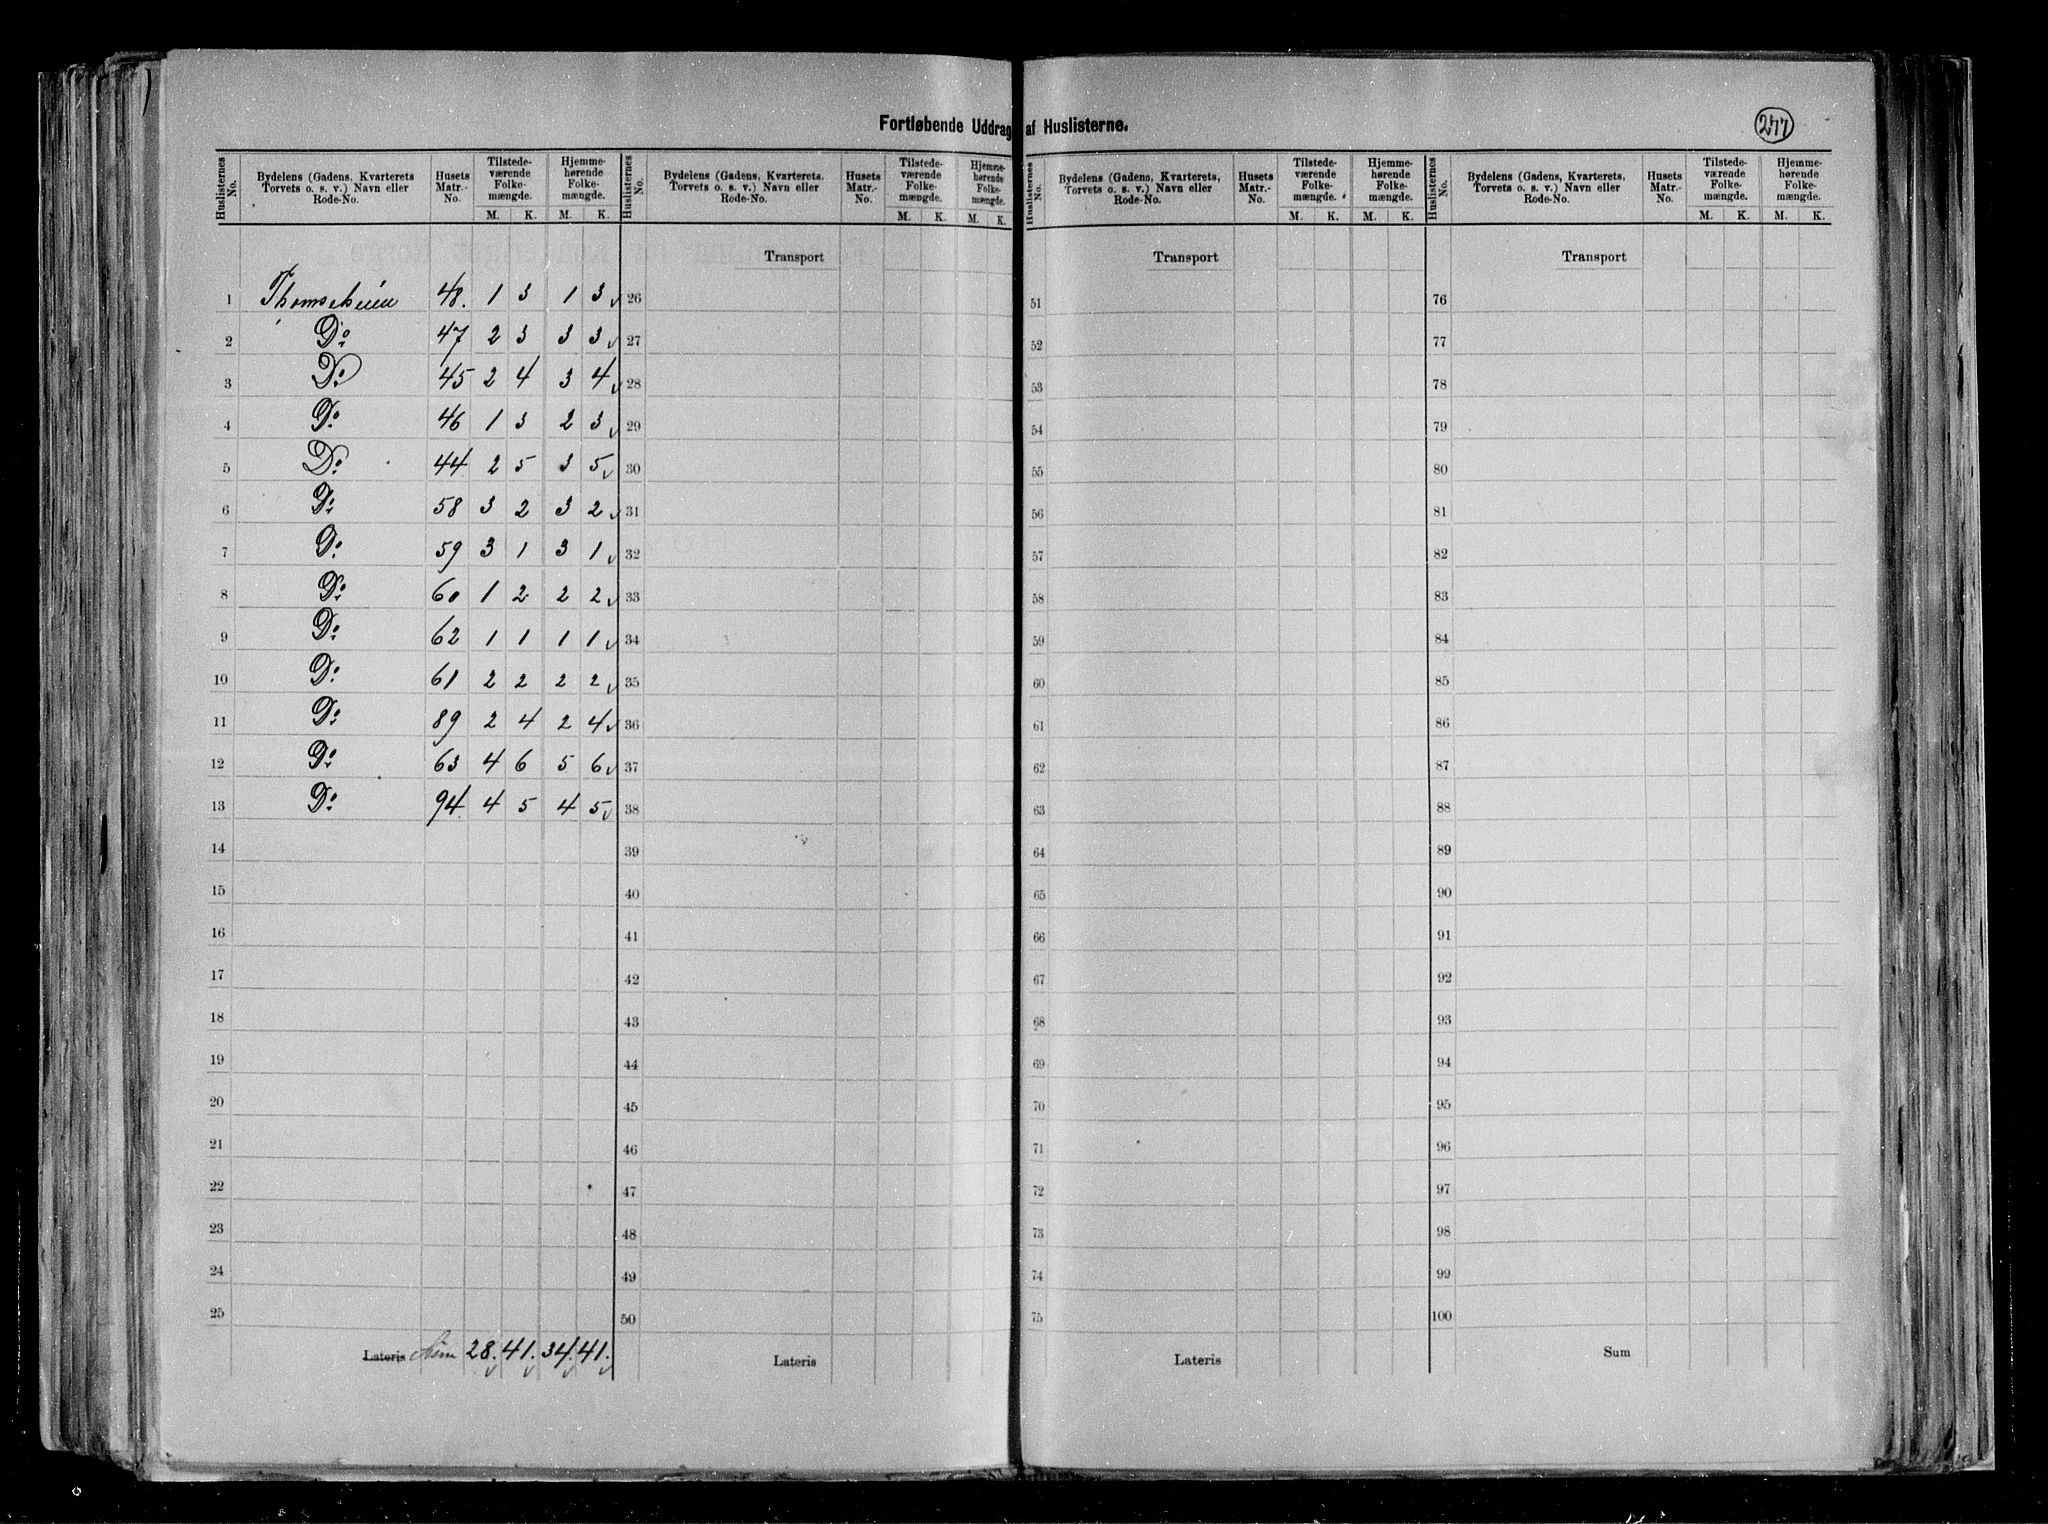 Fortløbende Uddrag af Huslisterne.
277
Huslisternes No. | Bydelens (Gadens, Kvarterets, Torvets o. s. v.) Navn eller Rode-No. | Husets Matr.-No. | Tilstedeværende Folkemængde. M. K. | Hjemmehørende Folkemængde. M. K.
1 48. 1 3 1 3
2 Do 47 2 3 3 3
3 Do 45 2 4 3 4
4 Do 46 1 3 2 3
5 Do 44 2 5 3 5
6 Do 58 3 2 3 2
7 Do 59 3 1 3 1
8 Do 60 1 2 2 2
9 Do 62 1 1 1 1
10 Do 61 2 2 2 2
11 Do 89 2 4 2 4
12 Do 63 4 6 5 6
13 Do 94 4 5 4 5
14
15
16
17
18
19
20
21
22
23
24
25
Lateris 28. 41. 34. 41.
Huslisternes No. | Bydelens (Gadens, Kvarterets, Torvets o. s. v.) Navn eller Rode-No. | Husets Matr.-No. | Tilstedeværende Folkemængde. M. K. | Hjemmehørende Folkemængde. M. K.
Transport
26
27
28
29
30
31
32
33
34
35
36
37
38
39
40
41
42
43
44
45
46
47
48
49
50
Lateris
Huslisternes No. | Bydelens (Gadens, Kvarterets, Torvets o. s. v.) Navn eller Rode-No. | Husets Matr.-No. | Tilstedeværende Folkemængde. M. K. | Hjemmehørende Folkemængde. M. K.
Transport
51
52
53
54
55
56
57
58
59
60
61
62
63
64
65
66
67
68
69
70
71
72
73
74
75
Lateris
Huslisternes No. | Bydelens (Gadens, Kvarterets, Torvets o. s. v.) Navn eller Rode-No. | Husets Matr.-No. | Tilstedeværende Folkemængde. M. K. | Hjemmehørende Folkemængde. M. K.
Transport
76
77
78
79
80
81
82
83
84
85
86
87
88
89
90
91
92
93
94
95
96
97
98
99
100
Sum